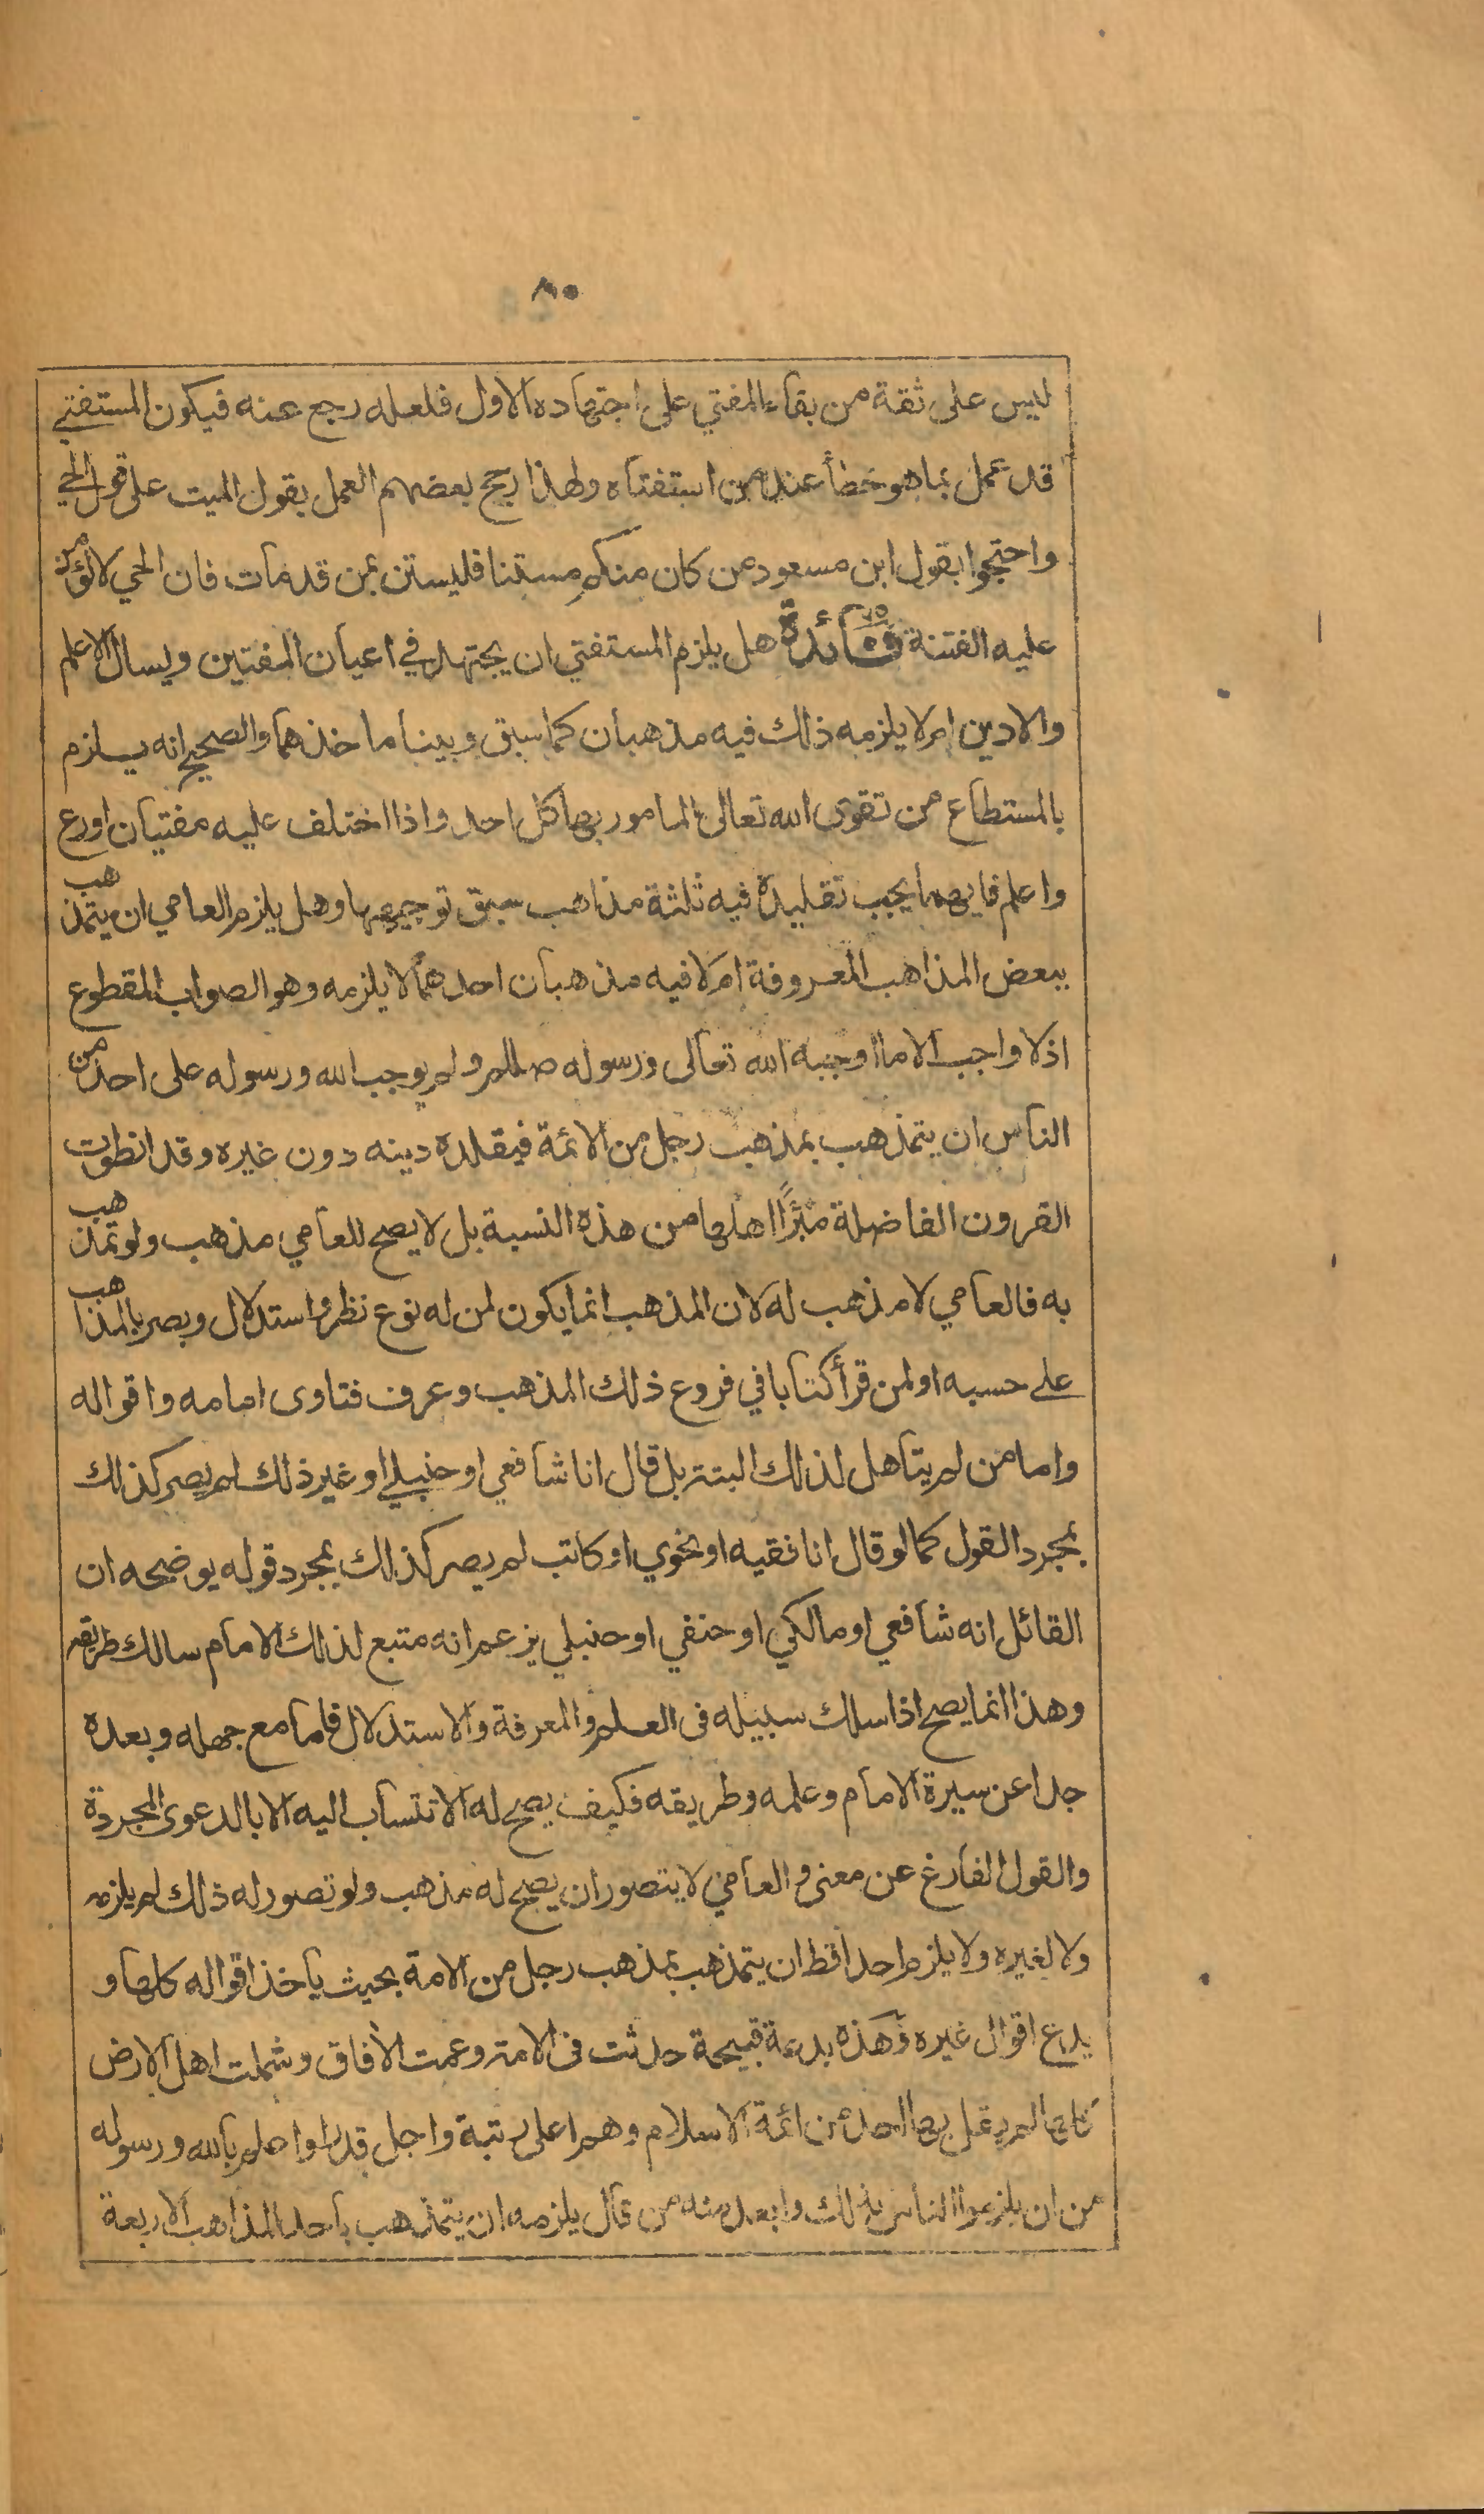 ٨٠
ليس على ثقة من بقاء المفتي على اجتهاده الاول فلعله رجع عنه فيكون المستفتي
قد عمل بما هو خطأ عند من استفتاه ولهذا رجح بعضهم العمل بقول الميت على قول الحي
واحتجوا بقول ابن مسعود من كان منكم مستنا فليستن بمن قد مات فان الحي لا تؤمن
عليه الفتنة فائدة ٧٥ هل يلزم المستفتي ان يجتهد في اعيان المفتين ويسال الاعلم
والادين ام لا يلزمه ذلك فيه مذهبان كما سبق وبينا ماخذهما والصحيح انه يلزم
بالمستطاع من تقوى الله تعالى المامور بها كل احد واذا اختلف عليه مفتيان اورع
واعلم فايهما يجب تقليده فيه ثلثة مذاهب سبق توجيهها وهل يلزم العامي ان يتمذهب
ببعض المذاهب المعروفة ام لا فيه مذهبان احدهما لا يلزمه وهو الصواب المقطوع
اذ لا واجب الا ما اوجبه الله تعالى ورسوله صللم ولم يوجب الله ورسوله على احد من
الناس ان يتمذهب بمذهب رجل من الائمة فيقلده دينه دون غيره وقد انطوت
القرون الفاضلة مبرًّا اهلها من هذه النسبة بل لا يصح للعامي مذهب ولو تمذهب
به فالعامي لا مذهب له لان المذهب انما يكون لمن له نوع نظر واستدلال وبصر بالمذاهب
على حسبه او لمن قرأ كتابا في فروع ذلك المذهب وعرف فتاوى امامه واقواله
واما من لم يتاهل لذلك البتة بل قال انا شافعي او حنبلي او غير ذلك لم يصر كذلك
بمجرد القول كما لو قال انا فقيه او نحوي او كاتب لم يصر كذلك بمجرد قوله يوضحه ان
القائل انه شافعي او مالكي او حنفي او حنبلي يزعم انه متبع لذلك الامام سالك طريقه
وهذا انما يصح اذا سلك سبيله فى العلم والمعرفة والاستدلال فاما مع جهله وبعده
جدا عن سيرة الامام وعلمه وطريقه فكيف يصح له الانتساب اليه الا بالدعوى المجردة
والقول الفارغ عن معنى و العامي لا يتصور ان يصح له مذهب ولو تصور له ذلك لم يلزمه
ولا لغيره ولا يلزم احدا قط ان يتمذهب بمذهب رجل من الامة بحيث ياخذ اقواله كلها و
يدع اقوال غيره وهذه بدعة قبيحة حدثت فى الامة وعمت الأفاق وشملت اهل الارض
لم يقل بها احد من ائمة الاسلام وهم اعلى رتبة واجل قدرا واعلم بالله ورسوله
من ان يلزموا الناس بذلك وابعد منه من قال يلزمه ان يتمذهب باحد المذاهب الاربعة